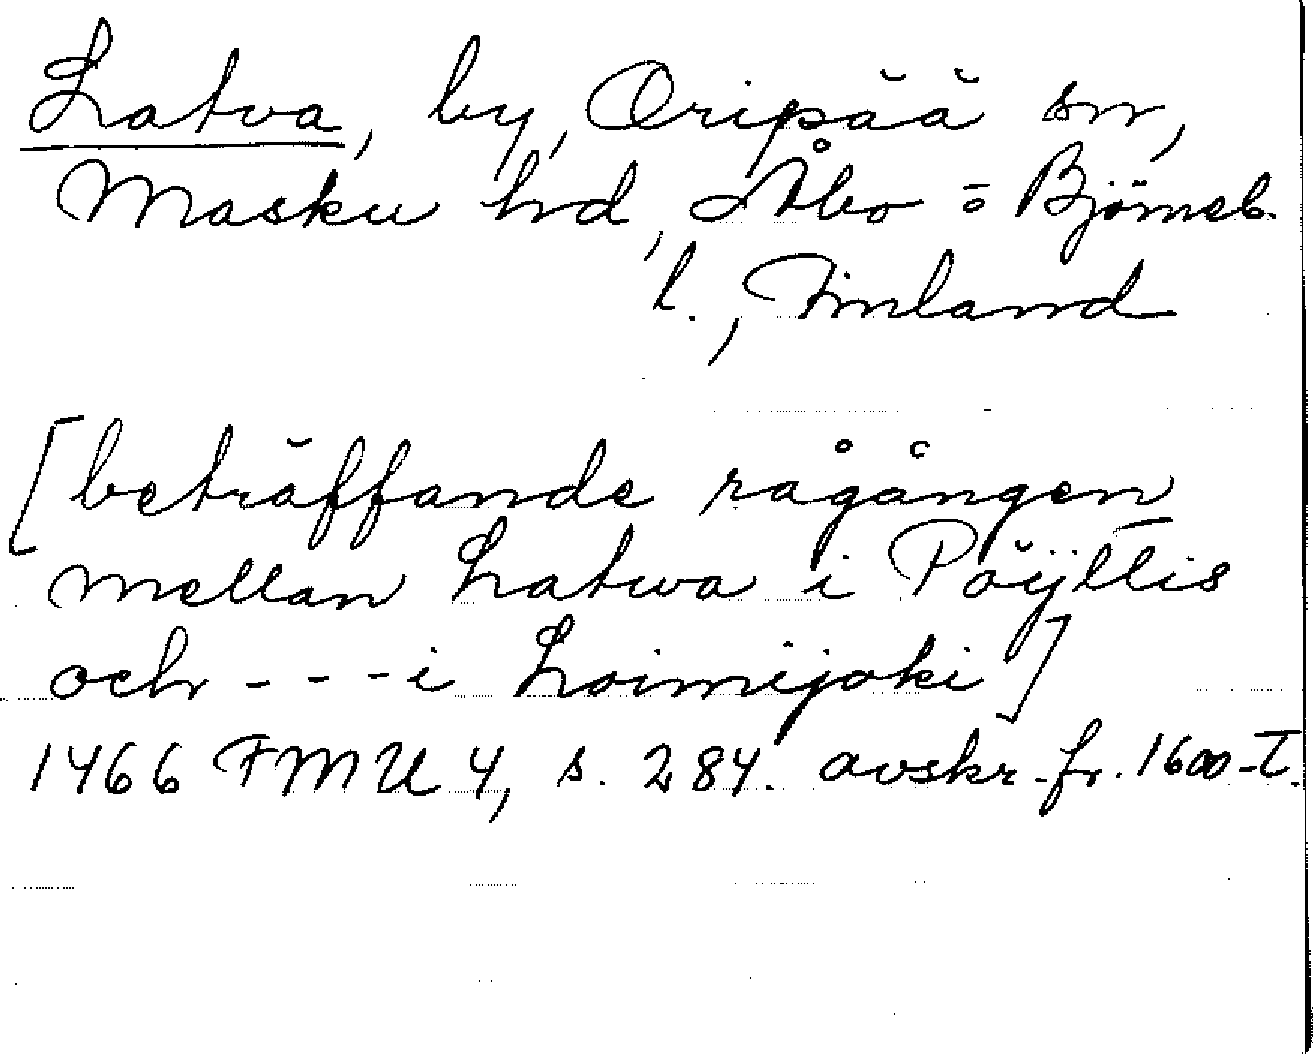 Latva, by, Oripää sn,
Masku hd, Åbo = Björneb.
l., Finland
[beträffande rågången
mellan Latwa i Pöÿttis
och - - - i Loimijoki]
1466 FMU 4, s. 284. avskr. fr. 1600-T.